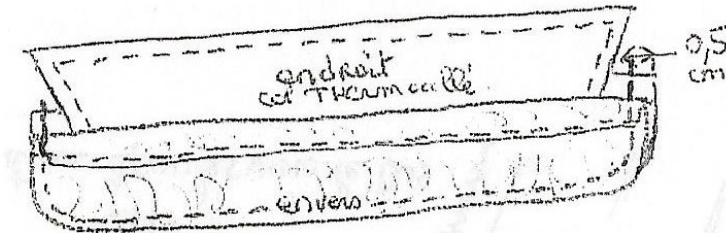 endroit
col THermocollé
0,5
cm
envers